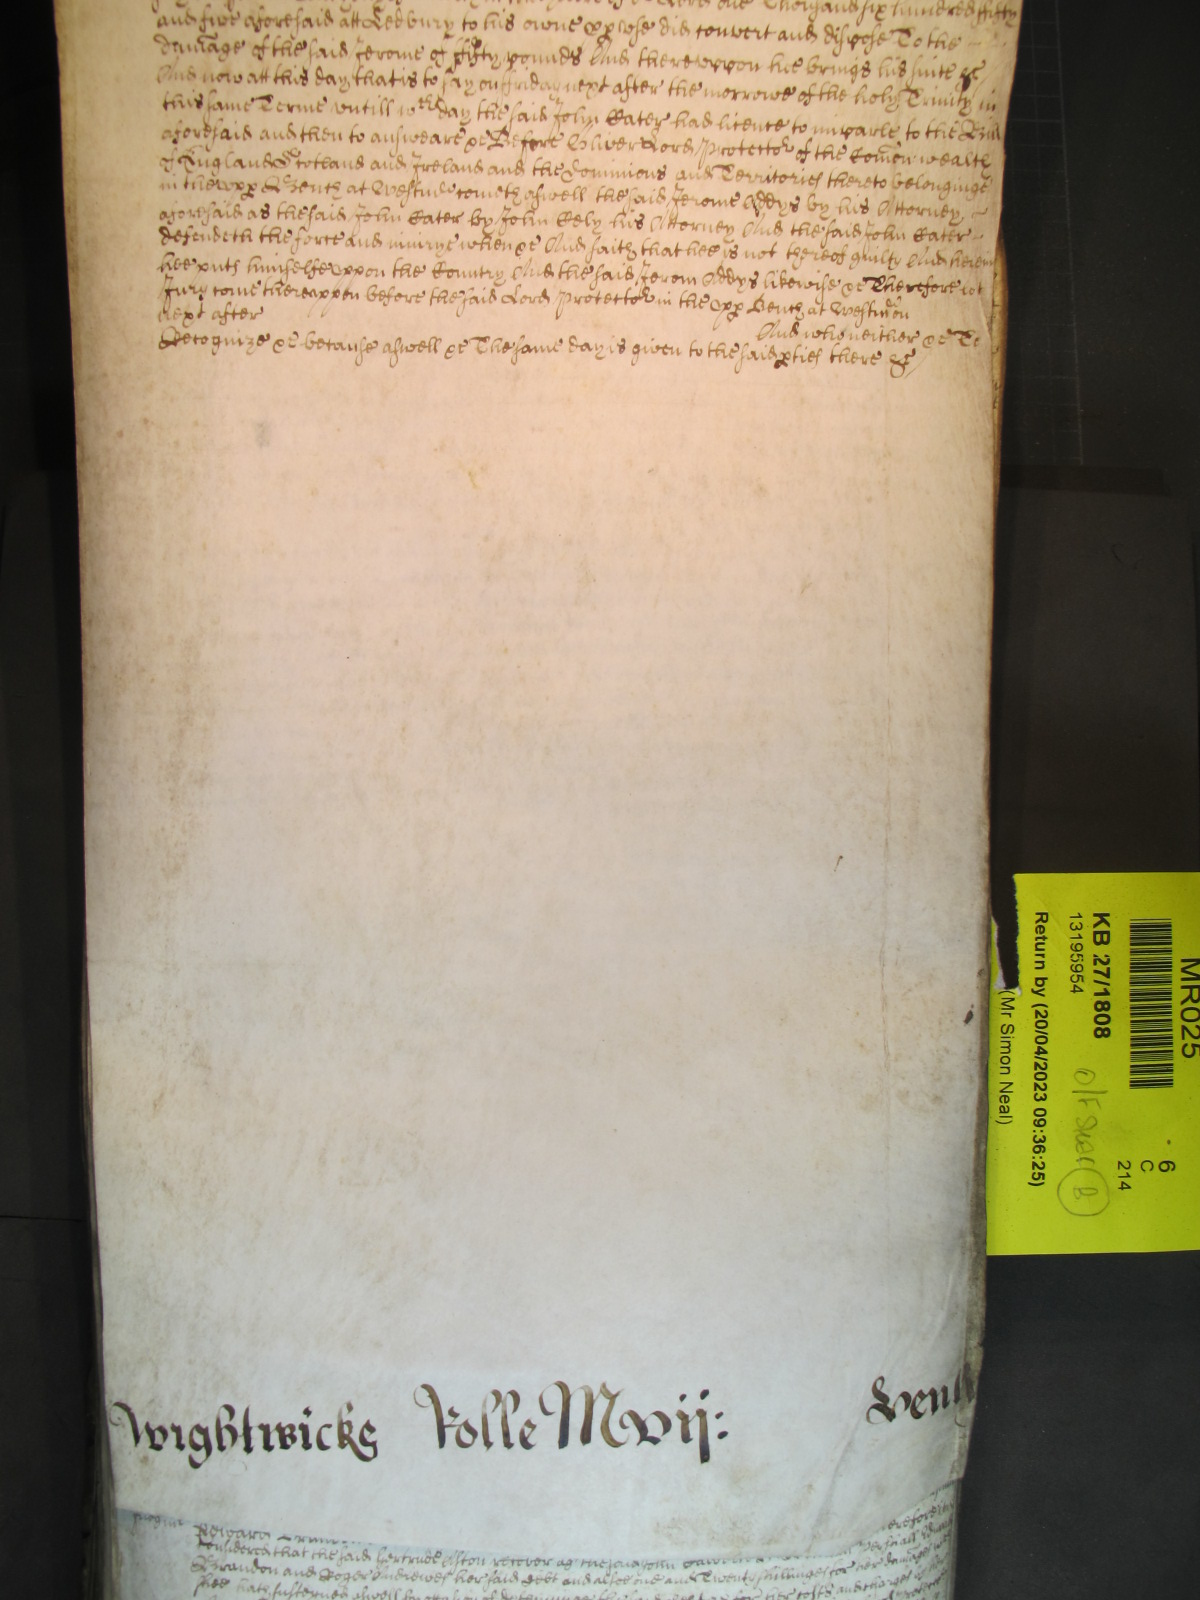 in the yeare of o Lord one Thousand six hundred fifty
and five aforesaid att Ledbury to his owne pp use did convert and dispose To the
damage of the said Jerome of fifty pounds And thereuppon hee brings his suite &c
And now att this day that is to say on Friday next after the morrowe of the holy Trinity in
this same Terme untill wch day the said John Eater had licence to imparle to the Bill
aforesaid and then to answeare &c Before Oliver Lord Protector of the Comon wealth
of England Scotland and Ireland and the Dominions and Territories thereto belonginge
in the upp Bench at Westm cometh aswell the said Jerome Addys by his Attorney
aforesaid as the said John Eater by John Kely his Attorney And the said John Eater
defendeth the force and iniurye when &c And saith that hee is not thereof guilty And herein
hee puts himselfe uppon the Countrey And the said Jerom Addys likewise &c Therefore let
Jury come thereuppon before the said Lord Protector in the upp Bench at Westm on
next after And who neither &c To
Recognize &c because aswell &c The same day is given to the said pties there &c
Wightwicks Rolle M vij:
Edward
considered that the said Gertrude Aston recover ag the said John
Brandon and Roger Andrewes her said debt and alsoe one and Twenty shillinges for her damages
shee hath susteyned aswell for her costs and charges
MR025
6
C
214
KB 27/1808
13195954
O/F Shelf B
Return by (20/04/2023 09:36:25)
(Mr Simon Neal)